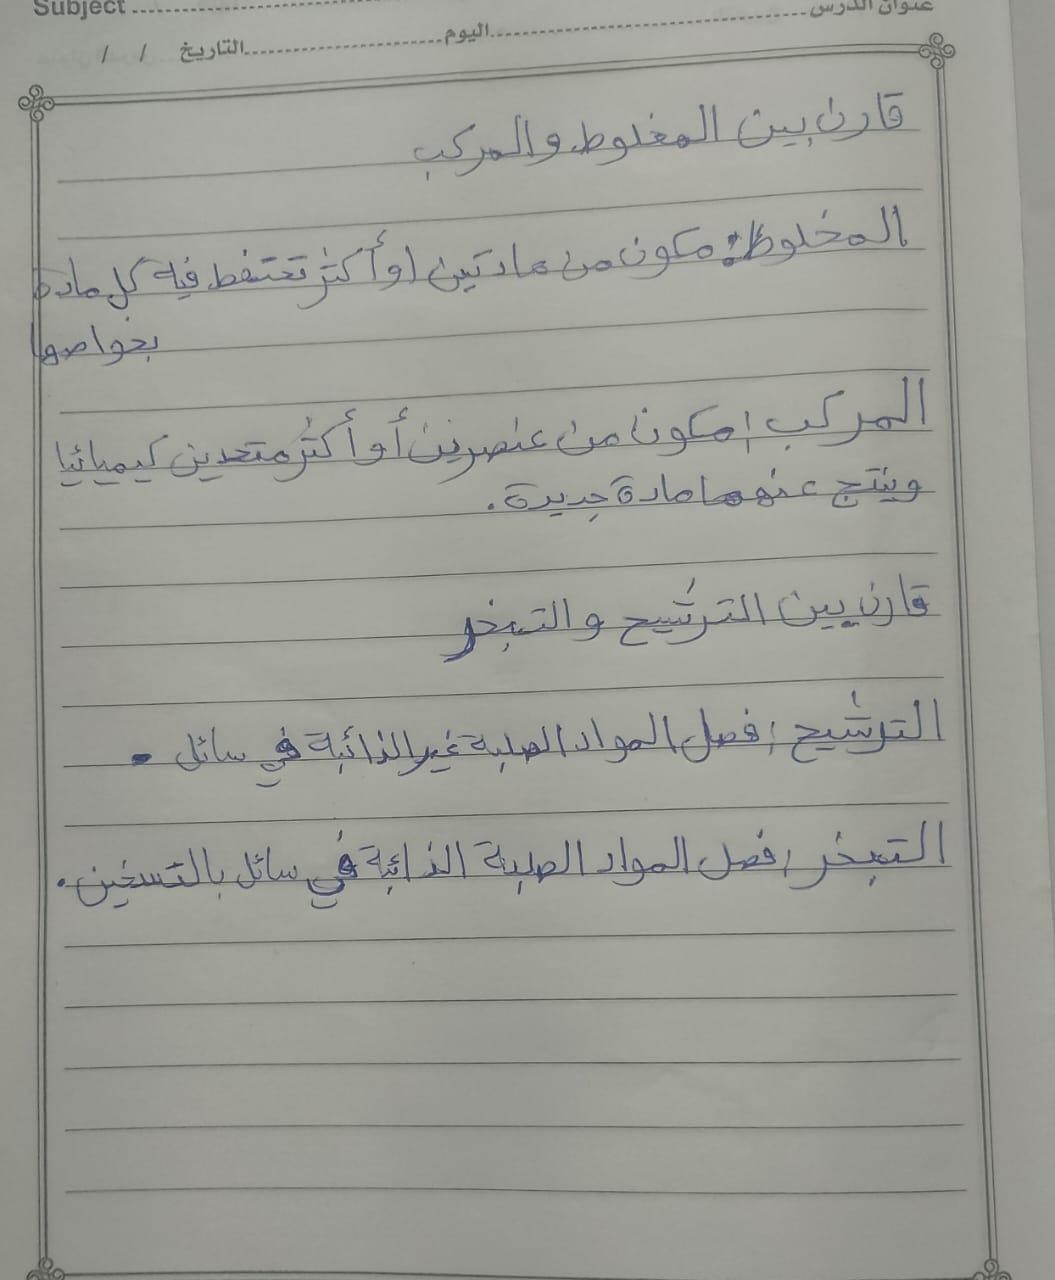 Subject
عنوان الدرس
اليوم
التاريخ / /
قارن بين المخلوط والمركب
المخلوط: مكون من مادتين أو أكثر تحتفظ فيه كل مادة
بخواصها
المركب: مكون من عنصرين أو أكثر متحدين كيميائيا
وينتج عنهما مادة جديدة.
قارن بين الترشيح والتبخر
الترشيح: فصل المواد الصلبة غير الذائبة في سائل.
التبخر: فصل المواد الصلبة الذائبة في سائل بالتسخين.